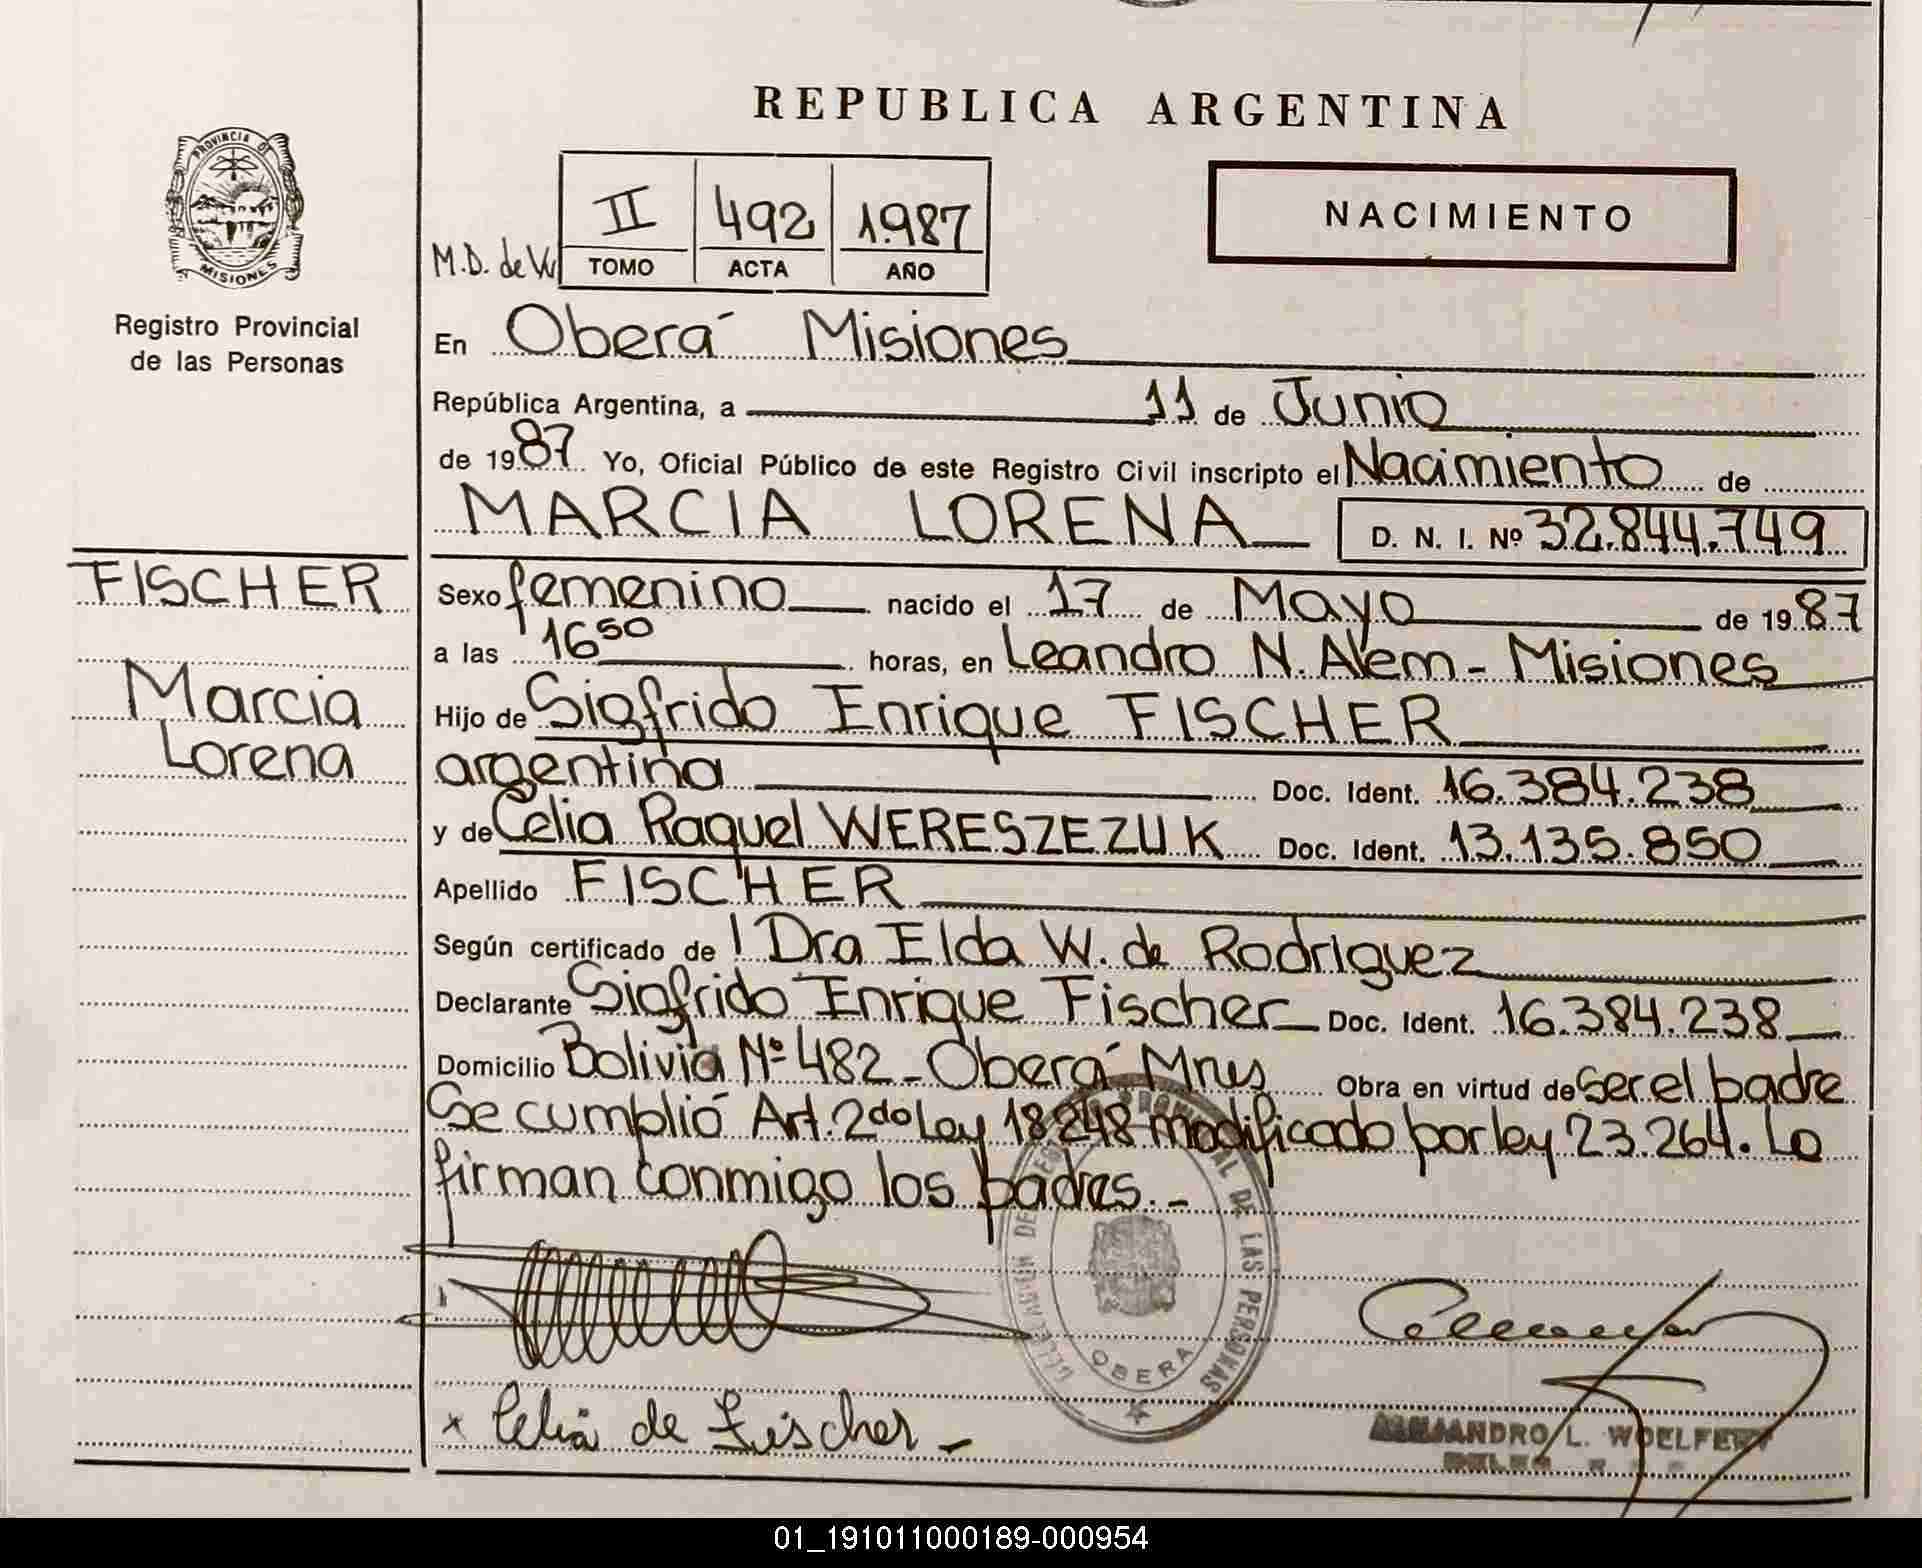 REPUBLICA ARGENTINA
PROVINCIA DE
MISIONES
Registro Provincial
de las Personas
M.D. de
II 492 1987
TOMO ACTA AÑO
NACIMIENTO
En Oberá Misiones
República Argentina, a 11 de Junio
de 1987 Yo, Oficial Público de este Registro Civil inscripto el Nacimiento de
MARCIA LORENA D. N. I. Nº 32.844.749
FISCHER
Marcia
Lorena
Sexo femenino nacido el 17 de Mayo de 1987
a las 16 50 horas, en Leandro N. Alem - Misiones
Hijo de Sigfrido Enrique FISCHER
argentina Doc. Ident. 16.384.238
y de Celia Raquel WERESZEZUK Doc. Ident. 13.135.850
Apellido FISCHER
Según certificado de Dra Elda W. de Rodriguez
Declarante Sigfrido Enrique Fischer Doc. Ident. 16.384.238
Domicilio Bolivia Nº 482 - Oberá Mnes Obra en virtud de Ser el padre
Se cumplió Art. 2do Ley 18248 modificado por ley 23.264. Lo
firman conmigo los padres. -
PROVINCIAL DE LAS PERSONAS
OBERA
x Celia de Fischer -
ALEJANDRO L. WOELFERT
01_191011000189-000954